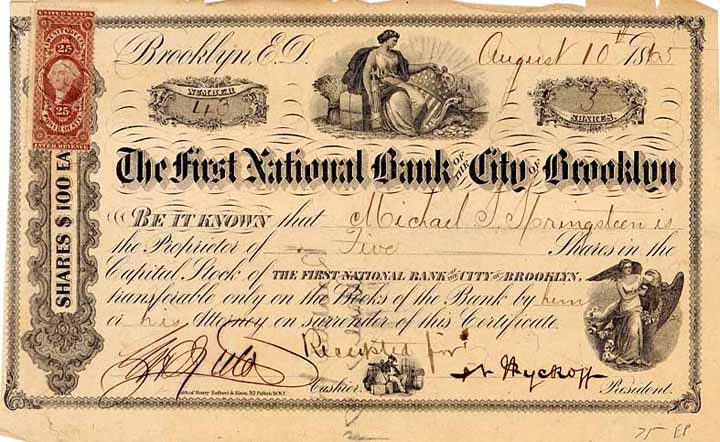 Brooklyn, E.D. August 10th 1865
25 25
INTER. REVENUE
NUMBER
113
3
SHARES.
The First National Bank OF THE City OF Brooklyn
SHARES $100 EA
BE IT KNOWN that Michael S. Springsteen is
the Proprietor of Five Shares in the
Capital Stock of THE FIRST NATIONAL BANK OF THE CITY OF BROOKLYN,
transferable only on the Books of the Bank by him
or his Attorney on surrender of this Certificate.
Receipted for
Cashier. N Wyckoff President.
75 EP